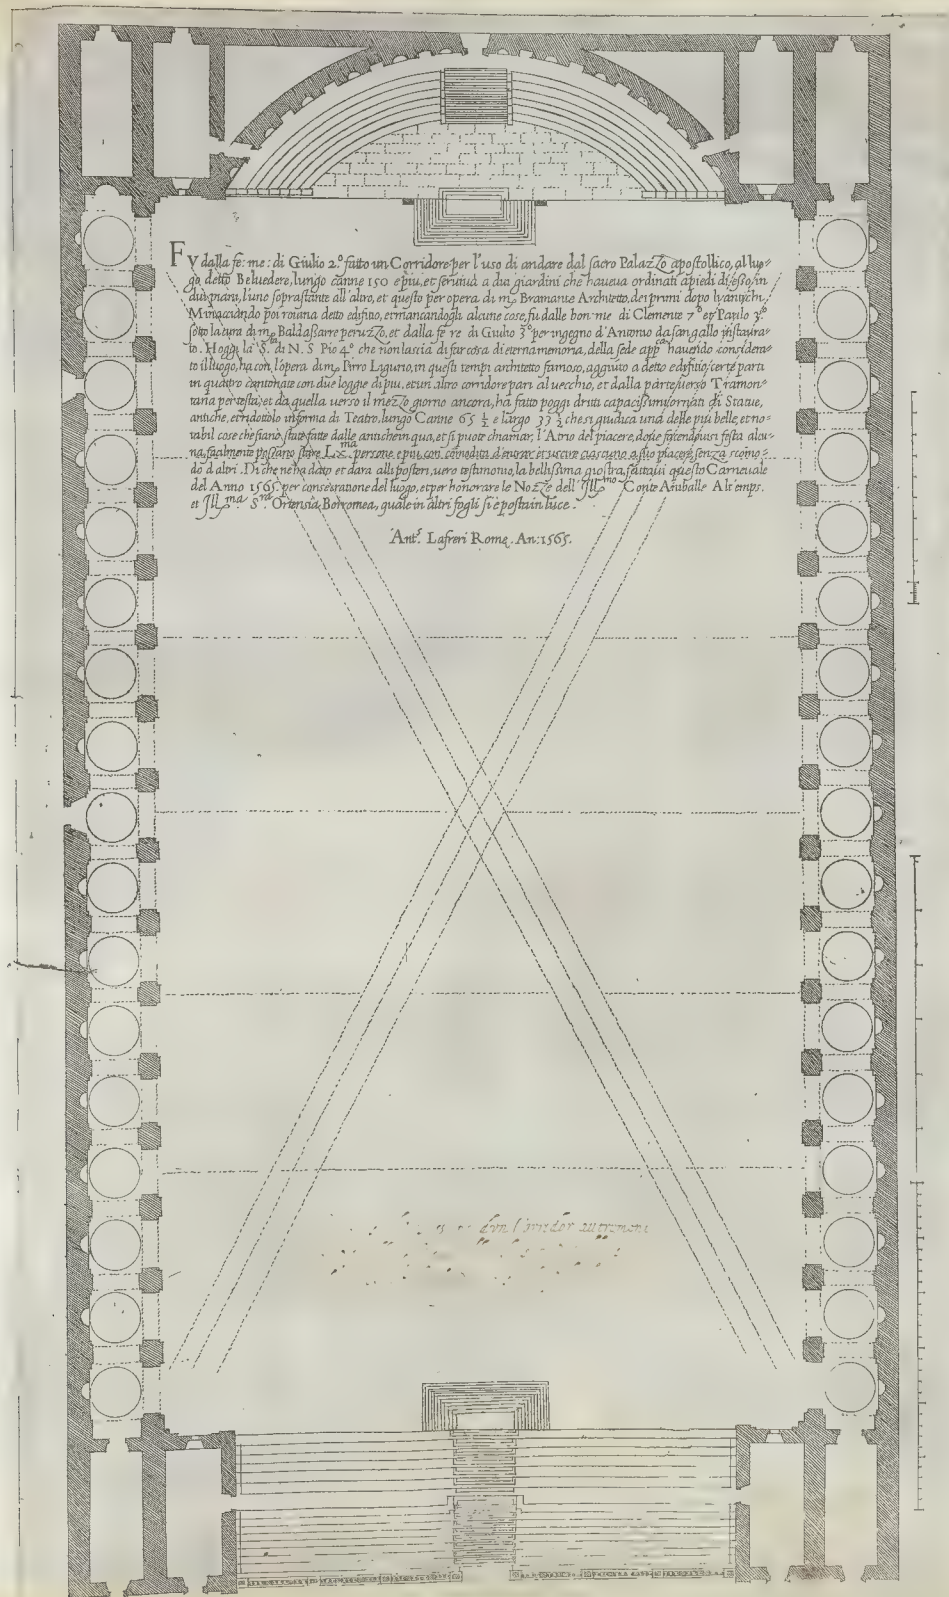 Fv dalla fe: me: di Giulio 2.º fatto un Corridore per l'uso di andare dal sacro Palazzo apostolico, al luo=
go detto Beluedere, lungo canne 150 e piu, et seruiua a dui giardini che haueua ordinati a piedi di esso, in
dui piani, l'uno soprastante all'altro, et questo per opera di mº Bramante Architetto, dei primi dopo li antichi,
Minacciando poi roiuna detto edifitio, e mancandogli alcune cose, fu dalle bon: me: di Clemente 7º et Paulo 3.º
sotto la cura di mº Baldassarre peruzzo, et dalla fe: re: di Giulio 3º per ingegno d'Antonio da san gallo instaura=
to. Hoggi la S.ta di N. S. Pio 4º che non lascia di far cosa di eterna memoria, della sede app.ca hauendo considera=
to il luogo, ha con l'opera di mº Pirro Ligurio, in questi tempi architetto famoso, aggiuto a detto edifitio, certe parti
in quattro cantonate con due loggie di piu, et un altro corridore pari al vecchio, et dalla parte verso Tramon=
tana per testa, et da quella verso il mezo giorno ancora, ha fatto poggi dritti capacissimi, ornati di Statue,
antiche, et ridottolo in forma di Teatro, lungo Canne 65 ½ e largo 33 ½ che si giudica una delle piu belle, et no=
tabil cose che siano state fatte dalle antiche in qua, et si puote chiamar, l'Atrio del piacere, doue facendouisi festa alcu=
na, facilmente possano stare Lx.ma persone, e piu, con comodita d'entrar, et uscire ciascuno a suo piacere, senza scomo=
do d'altri. Di che ne ha dato et dara alli posteri, uero testimonio, la bellissima giostra, fattaui questo Carneuale
del Anno 1565. per consegratione del luogo, et per honorare le Nozze dell' Ill.mo Conte Aniballe Altemps.
et Ill.ma S.ra Ortensia Borromea, quale in altri fogli si e posta in luce.
Ant.º Lafreri Rome. An: 1565.